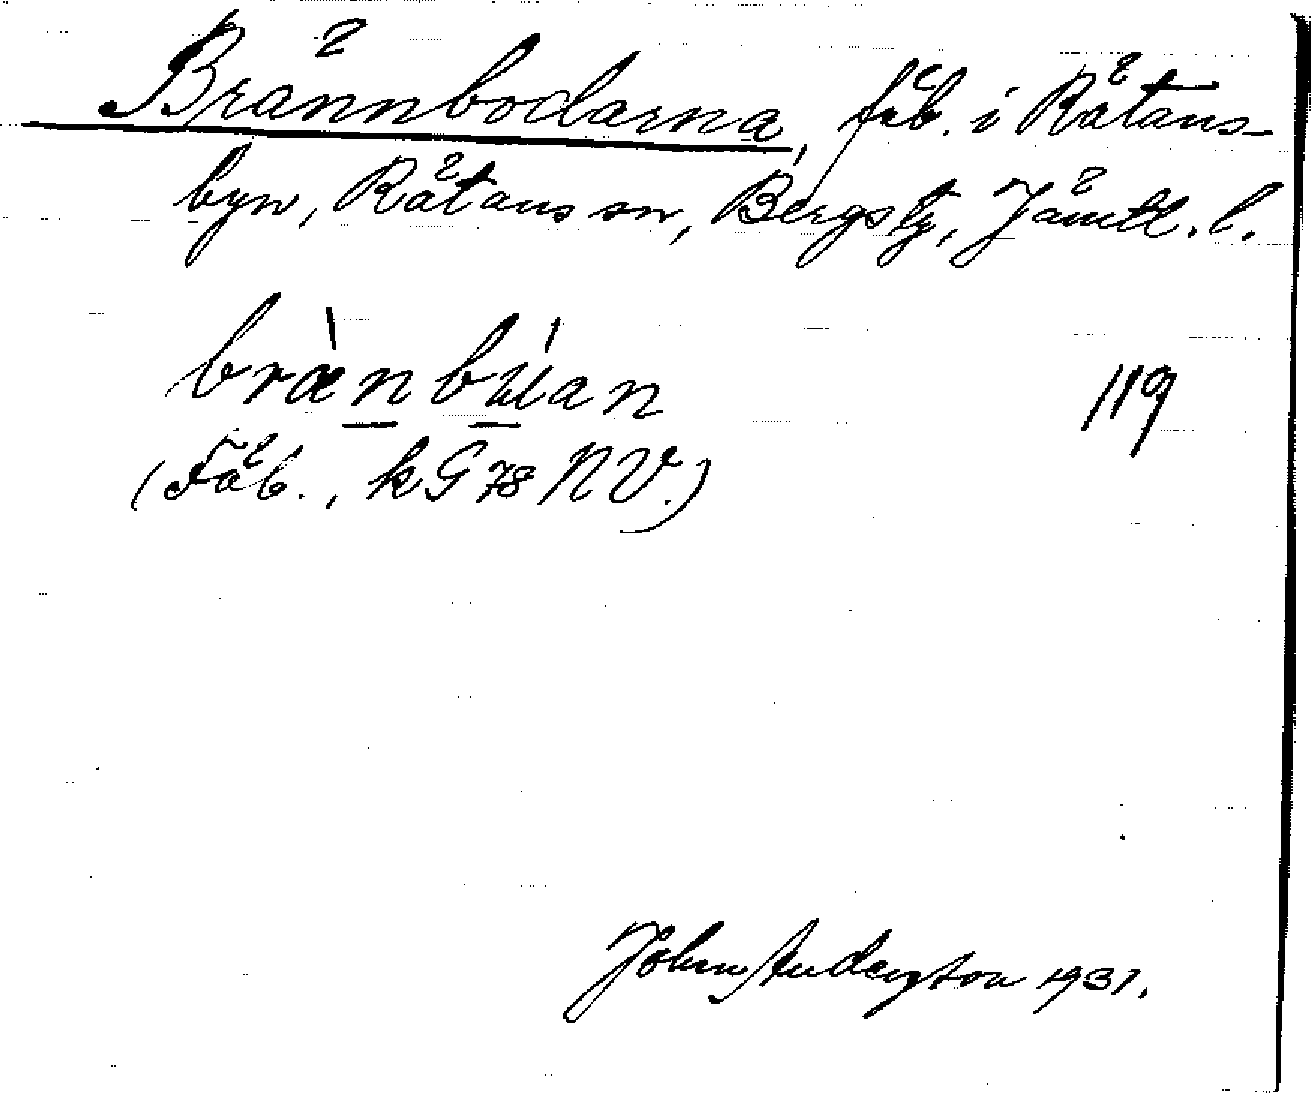 Brännbodarna, fäb. i Rätans-
byn, Rätans sn, Bergs tg, Jämtl. l.
bræ̀nbúan 119
(Fäb., kG 78 NV.)
John Anderston 1931.